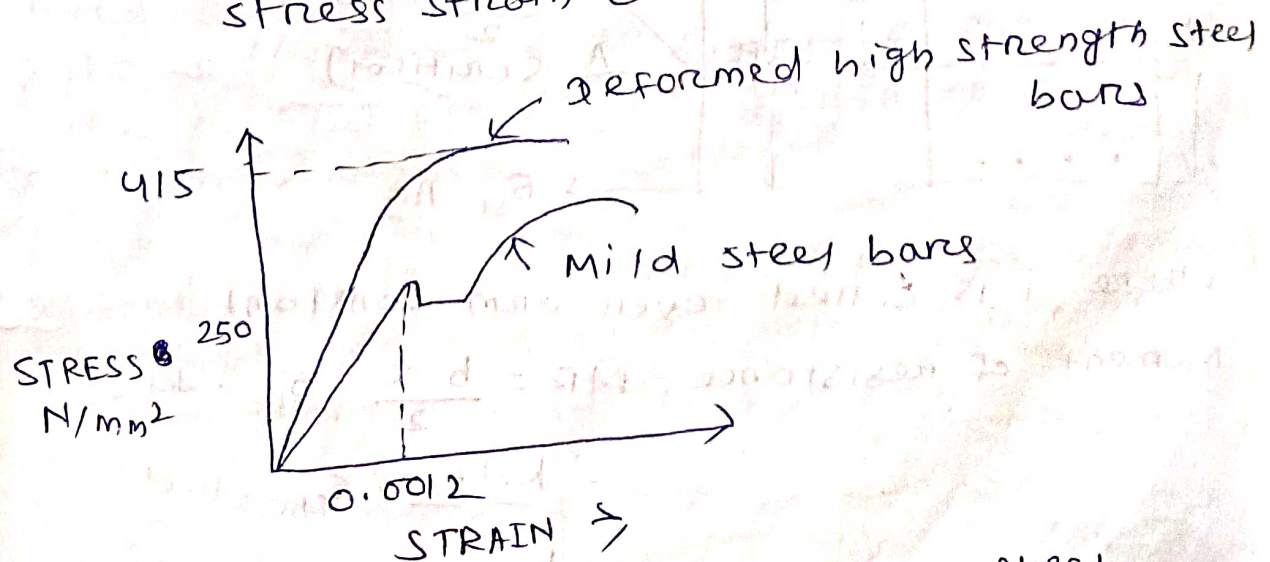 stress
Deformed high strength steel
bars
415
Mild steel bars
250
STRESS
N/mm2
0.0012
STRAIN